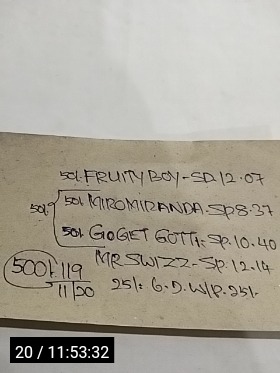 50/- FRUITYBOY - SP. 12.07
50/- 50/- MIROMIRANDA - SP 8.37
50/- GOGET GOTTI - SP. 10.40
MR SWIZZ - SP. 12.14
500/- 119
11/20 25/- G.D. W/P. 25/-
20 / 11:53:32